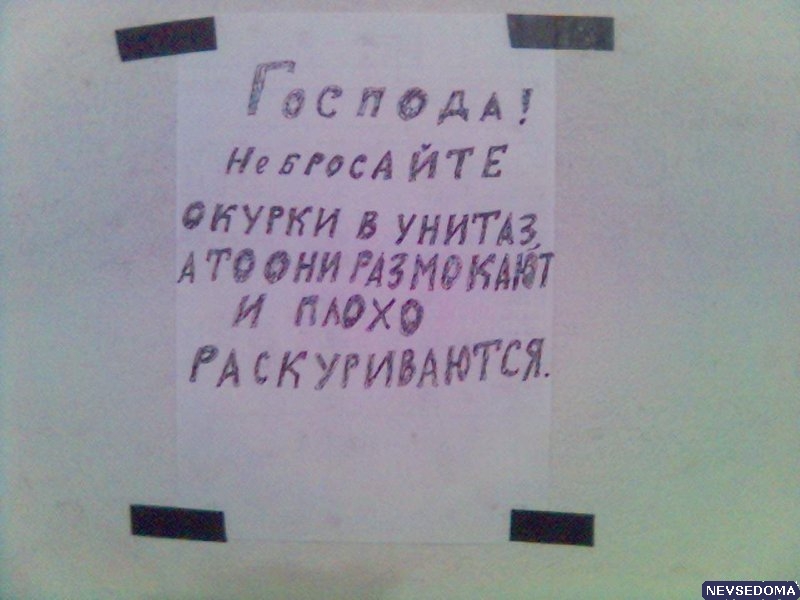 Господа!
Не бросайте
окурки в унитаз,
а то они размокают
и плохо
раскуриваются.
NEVSEDOMA